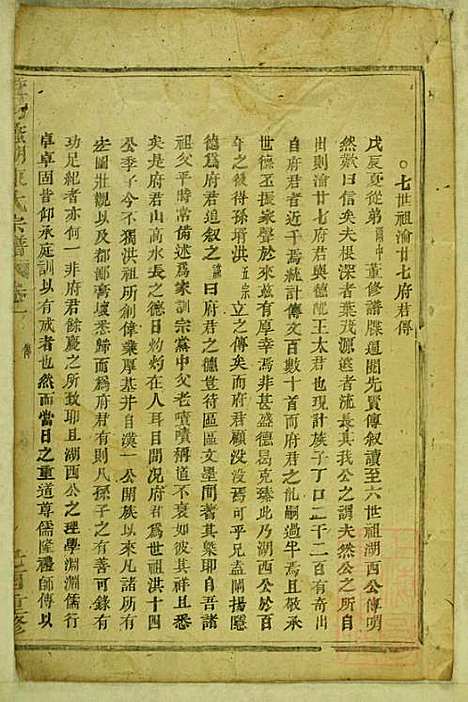 ○七世祖渝廿七府君傳
戊辰夏從弟 國中 董修譜牒週閱先賢傳叙讀至六世祖湖西公傳喟
然歎曰信矣夫根深者葉茂源遠者流長真我公之謂夫然公之所自
出則渝廿七府君與德 王太君也現計族子丁口二千二百有奇出
自府君者近千焉統計傳文百數十首而府君之 嗣講過半焉且啟承
世德丕振家聲於來茲有厚幸焉非甚盛德曷克臻此乃湖西公於百
年之後得孫壻洪 五宗 立之傳矣而府君顧没没焉可乎闡揚隱
德爲府君追叙之 曰府君之德豈待區區文墨間其槩耶自吾諸
祖父平時常備述爲家訓宗黨中父老嘖嘖稱道不衰余聞其祥且悉
矣是府君山高水長之德日灼灼在人耳目間况府君爲世祖洪十四
公季子今不獨洪祖所創偉業厚基并自漢一公開族以來凡諸所有
宏圖壯觀以及都鄙膏壤悉歸而爲府君有則凡孫子之有善可錄有
功足紀者亦何一非府君餘慶之所致耶且湖西公之理學淵淵儒行
卓卓固昔仰承庭訓以有成者也然而當日之重道尊儒隆禮師傅以
宗譜 卷一 傳
重修